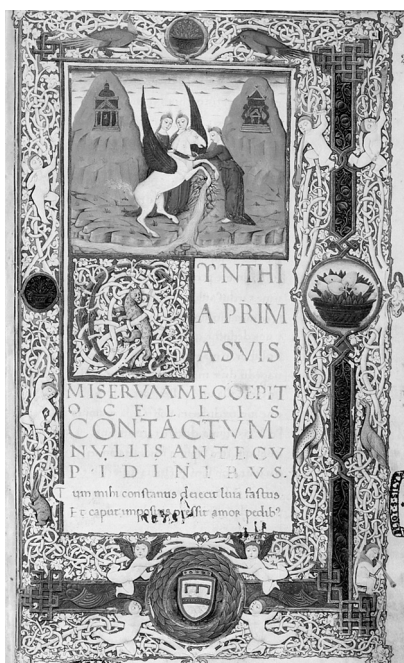 CYNTHI
A PRIM
A SVIS
MISERVM ME COEPIT
OCELLIS
CONTACTVM
NVLLIS ANTE CV
PIDINIBVS.
Tum mihi constantis deiecit luia fastus
Et caput impositis pressit amor pedib⁹